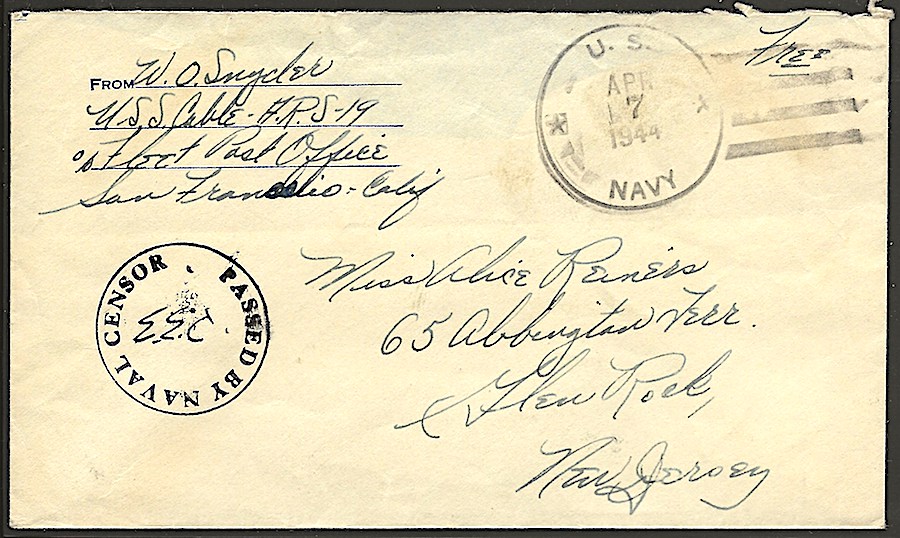 FROM W. O. Snyder
U.S.S. Cable - A.R.S-19
c/o Fleet Post Office
San Francisco - Calif
U. S.
APR
7
1944
NAVY
Free
PASSED BY NAVAL CENSOR
E.E.C.
Miss Alice Reiners
65 Abbington Terr.
Glen Rock,
New Jersey